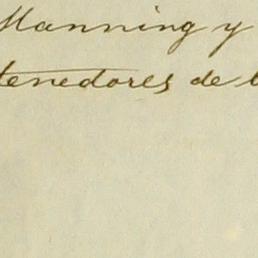 Manning y
tenedores de